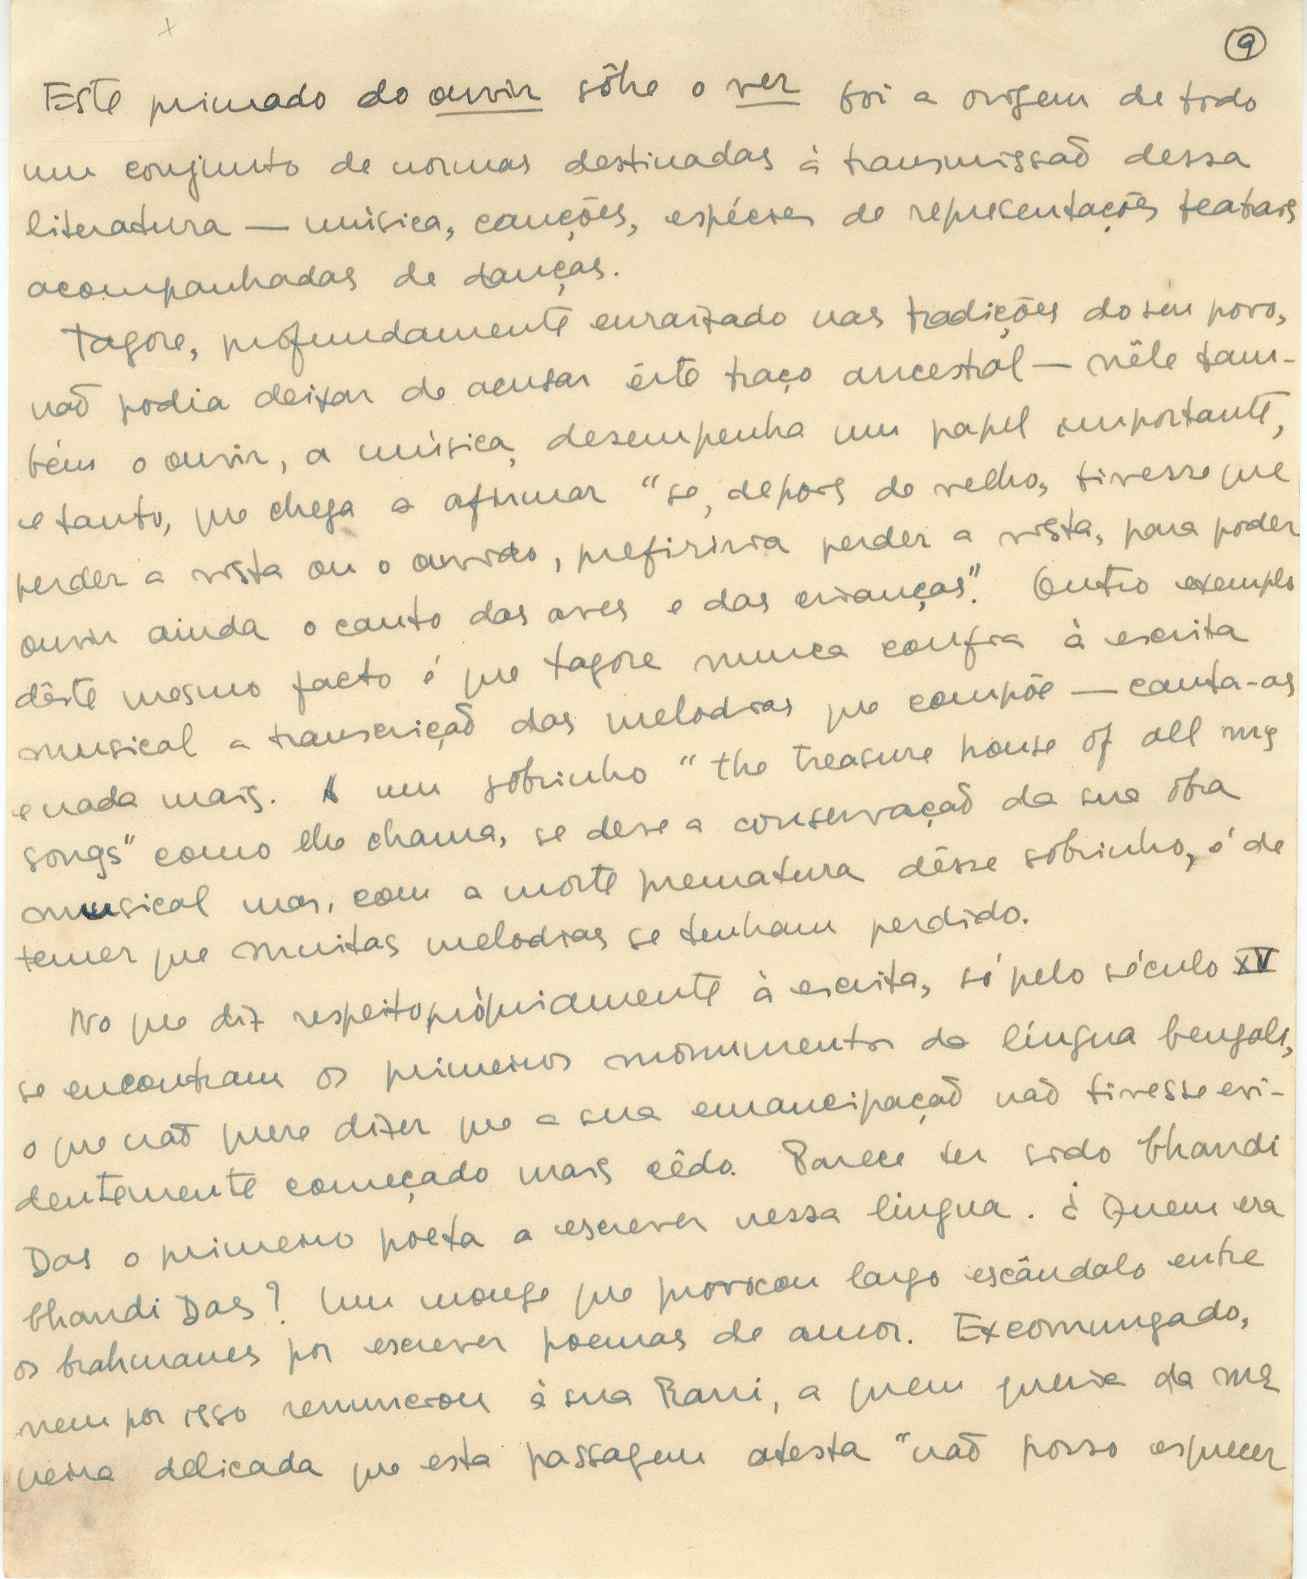 9
Este primado do ouvir sôbre o ver foi a origem de todo
um conjunto de normas destinadas à transmissão dessa
literatura — música, canções, espécies de representações teatrais
acompanhadas de danças.
Tagore, profundamente enraizado nas tradições do seu povo,
não podia deixar de acusar êste traço ancestral — nêle tam-
bém o ouvir, a música, desempenha um papel importante,
e tanto, que chega a afirmar "se, depois de velho, tivesse que
perder a vista ou o ouvido, prefiriria perder a vista, para poder
ouvir ainda o canto das aves e das crianças". Outro exemplo
dêste mesmo facto é que Tagore nunca confia à escrita
musical a transcrição das melodias que compõe — canta-as
e nada mais. A um sobrinho "the treasure house of all my
songs" como lhe chama, se deve a conservação da sua obra
musical mas, com a morte prematura dêsse sobrinho, é de
temer que muitas melodias se tenham perdido.
No que diz respeito pròpriamente à escrita, só pelo século XV
se encontram os primeiros monumentos da língua bengali,
o que não quere dizer que a sua emancipação não tivesse evi-
dentemente começado mais cêdo. Parece ter sido Chandi
Das o primeiro poeta a escrever nessa lingua. ¿ Quem era
Chandi Das? Um monge que provocou largo escândalo entre
os brahmanes por escrever poemas de amor. Excomungado,
nem por isso renunciou à sua Rami, a quem queria da ma
neira delicada que esta passagem atesta "não posso esquecer